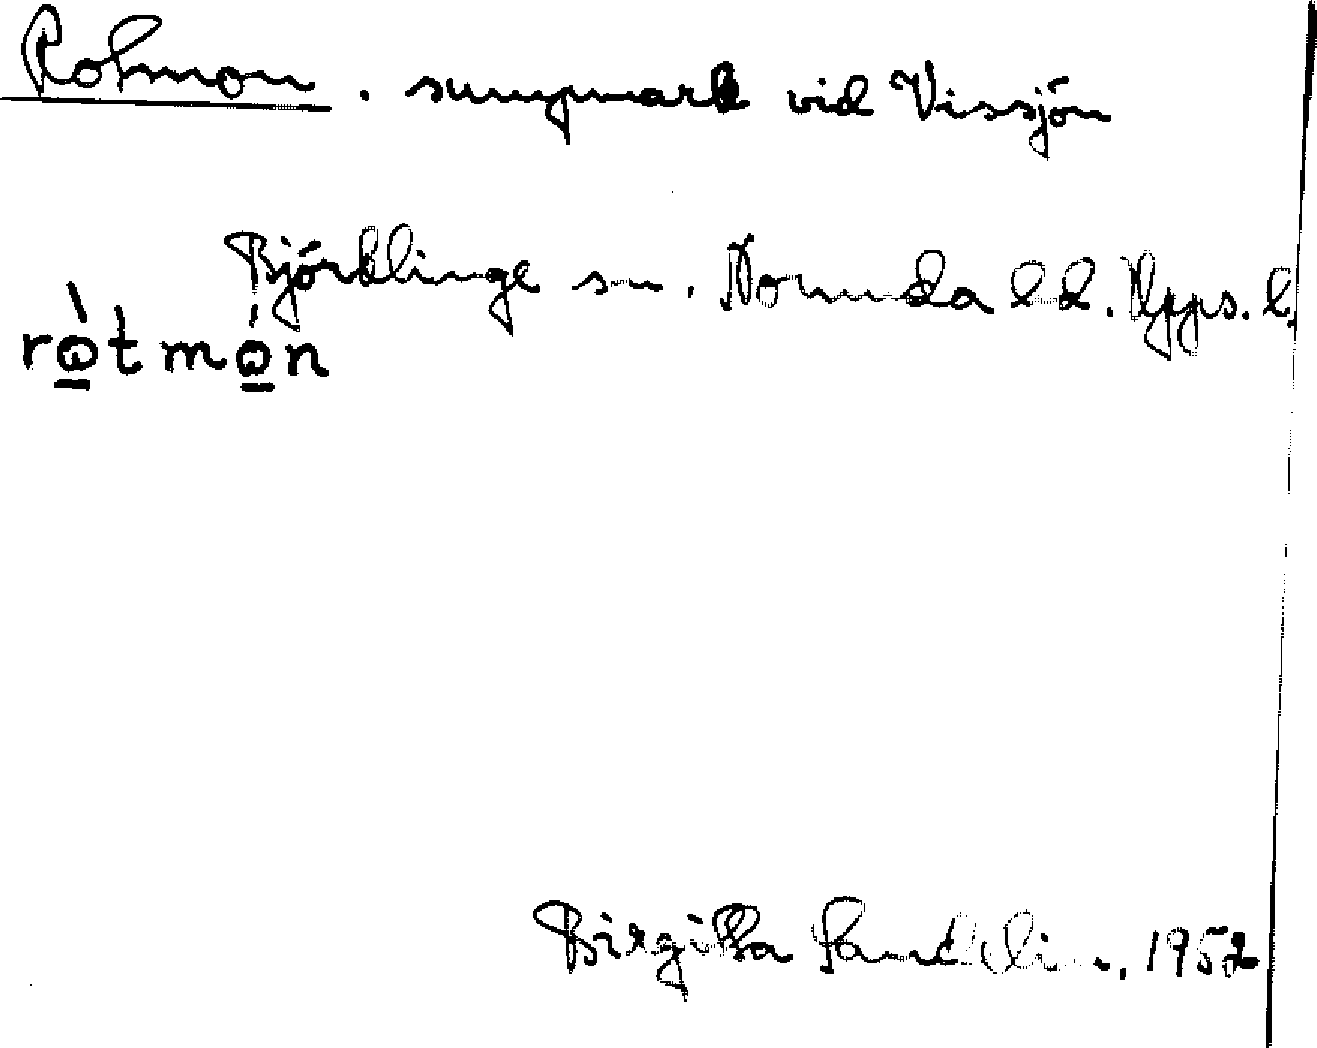 Rotmon. sumpmark vid Vissjön
Björklinge sn. Norunda hd. Upps. l.
rò̱tmó̱n
Birgitta Sandelin, 1952